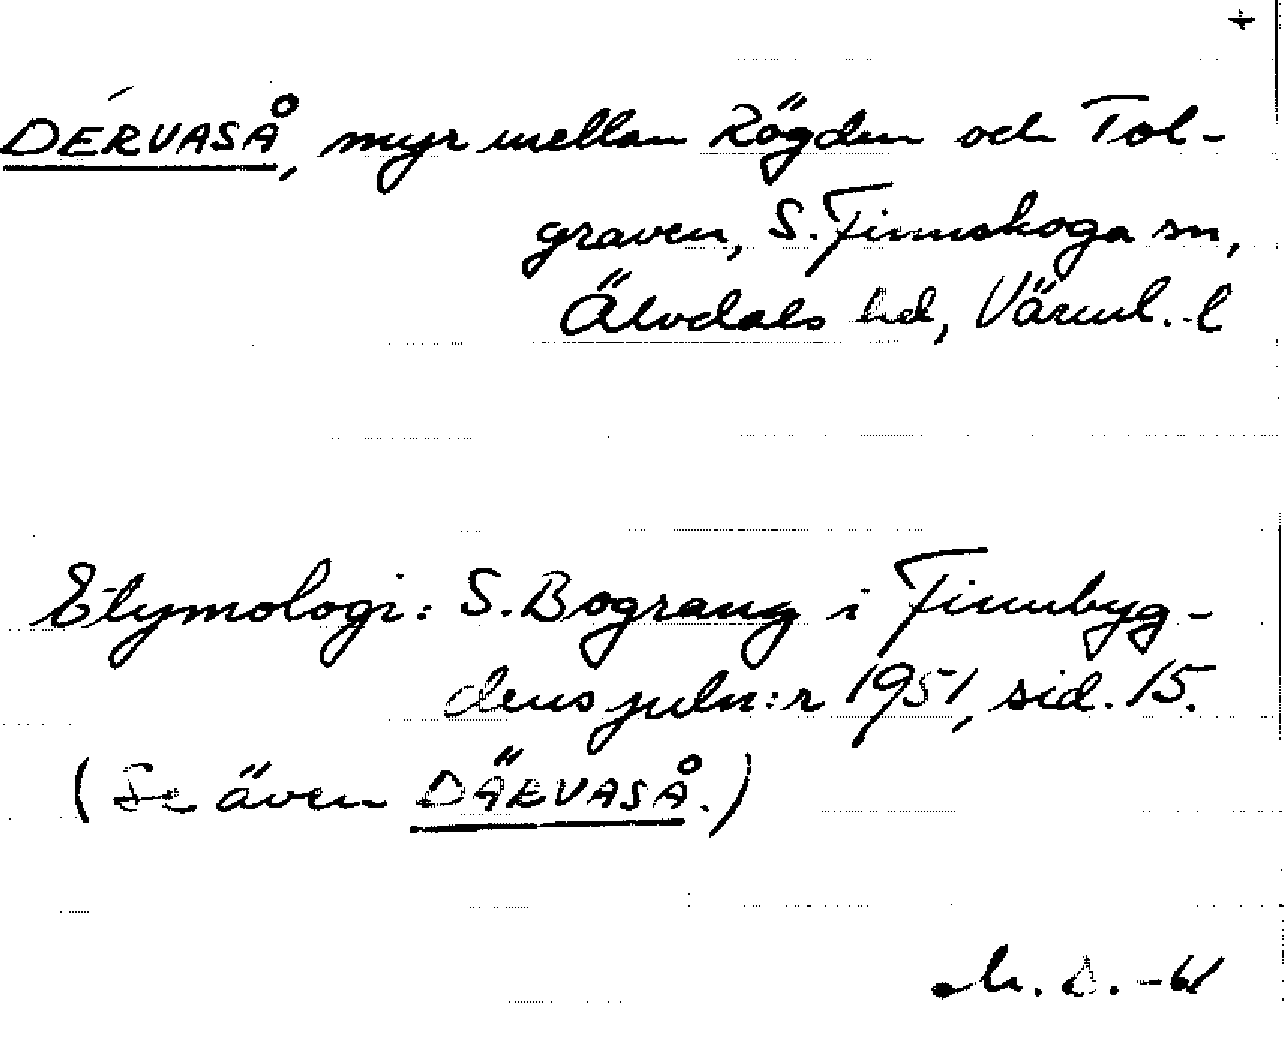 +
DÉRVASÅ, myr mellan Rögden och Tol-
graven, S. Finnskoga sn,
Älvdals hd, Värml. l
Etymologi: S. Bograng i Finnbyg-
dens juln:r 1951, sid. 15.
(Se även DÄRVASÅ.)
M. D. -61